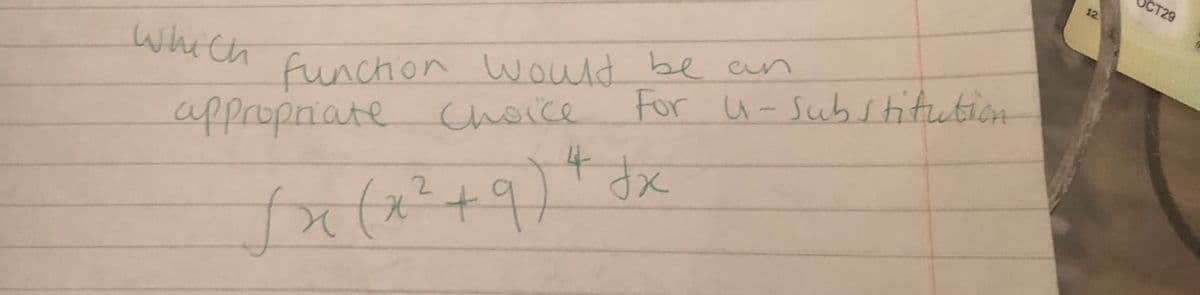 which
function would be an
appropriate choice For u-substitution
∫x(x²+9)⁴dx
12
OCT29